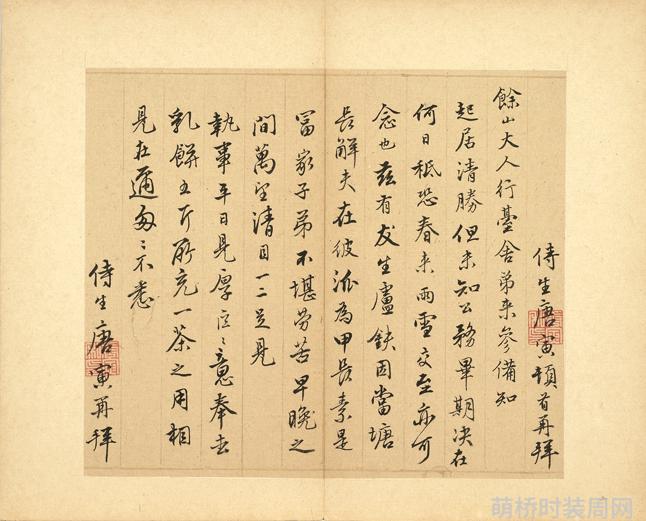 侍生唐寅頓首再拜
餘山大人行臺舍弟來參備知
起居清勝但未知公務畢期決在
何日秖恐春來雨雪交至亦可
念也茲有友生盧鈇因當塘
長解夫在彼派為甲長素是
富家子弟不堪勞苦早晚之
間萬望清目一二足見
執事平日見厚區〻意奉去
乳餅五斤所充一茶之用相
見在邇匆〻不悉
侍生唐寅再拜
萌桥时装周网